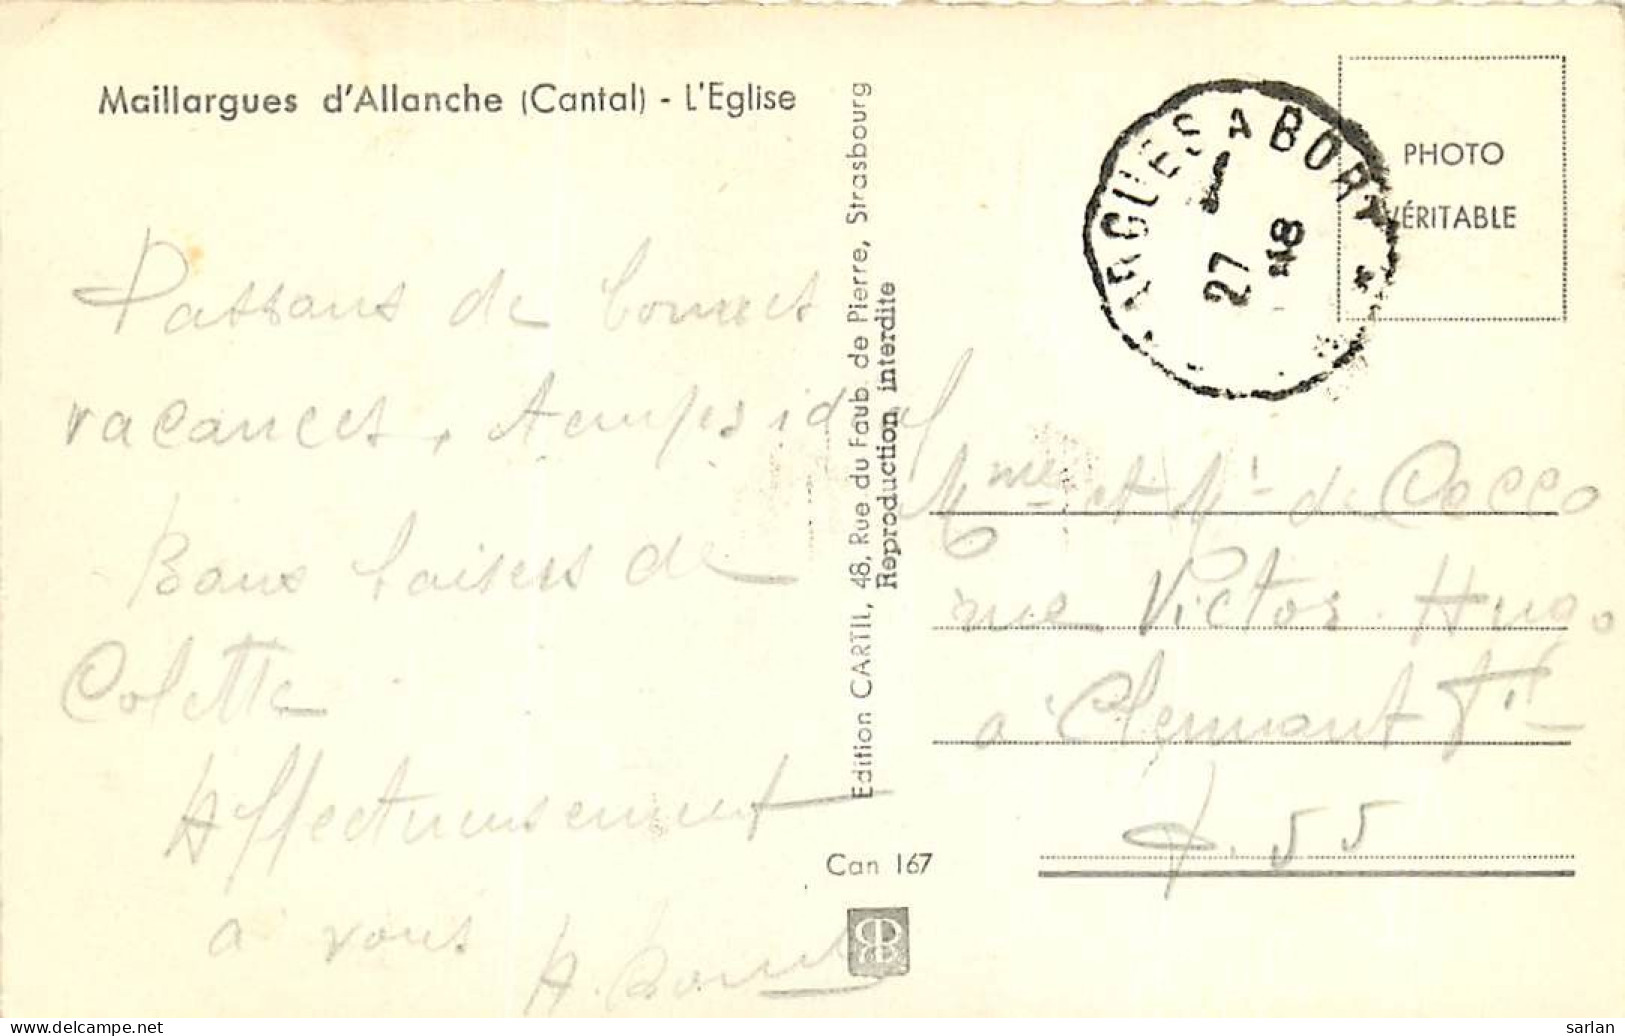 Maillargues d'Allanche (Cantal) - L'Eglise
Passons de bonnes
vacances, temps idéal
Bons baisers de
Colette
Affectueusement
à vous
Edition CARTIL, 48, Rue du Faub. de Pierre, Strasbourg
Reproduction interdite
Can 167
ARGUES A BORT
27
48
PHOTO
VÉRITABLE
Mme et Mr de Cecco
rue Victor Hugo
à Clermont Fd
55
delcampe.net
sarlan